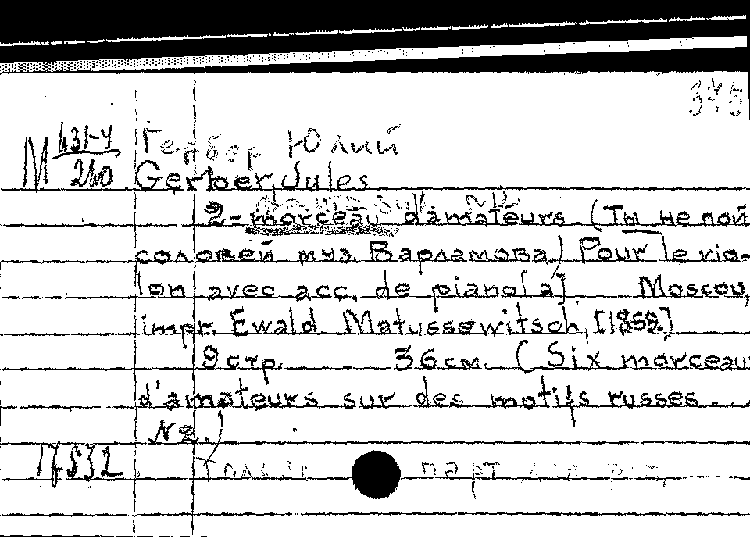 375
М 431-4/240 Гербер Юлий
Gerber, Jules
2-morceau d'amateurs (Ты не пой
соловей муз. Варламова) Pour le vio-
lon avec acc. de piano[a]. Moscou,
impr. Ewald Matussewitsch, [1862]
9 стр. 36 см. (Six morceau
d'amateurs sur des motifs russes...
N 2.)
17532 Только парт.